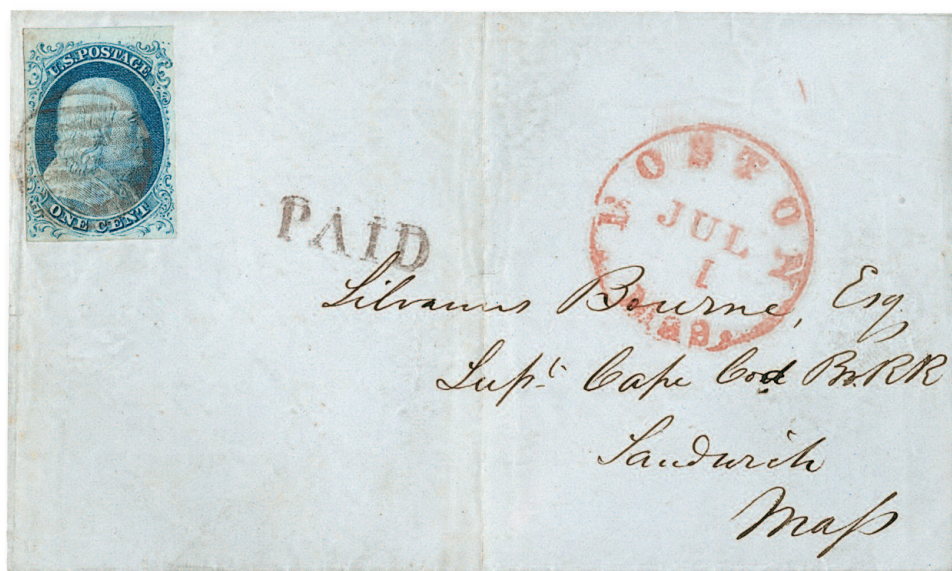 U.S. POSTAGE
ONE CENT
PAID
BOSTON
JUL
1
Mass.
Silvanus Bourne, Esq
Supt. Cape Cod Br. RR
Sandwich
Mass